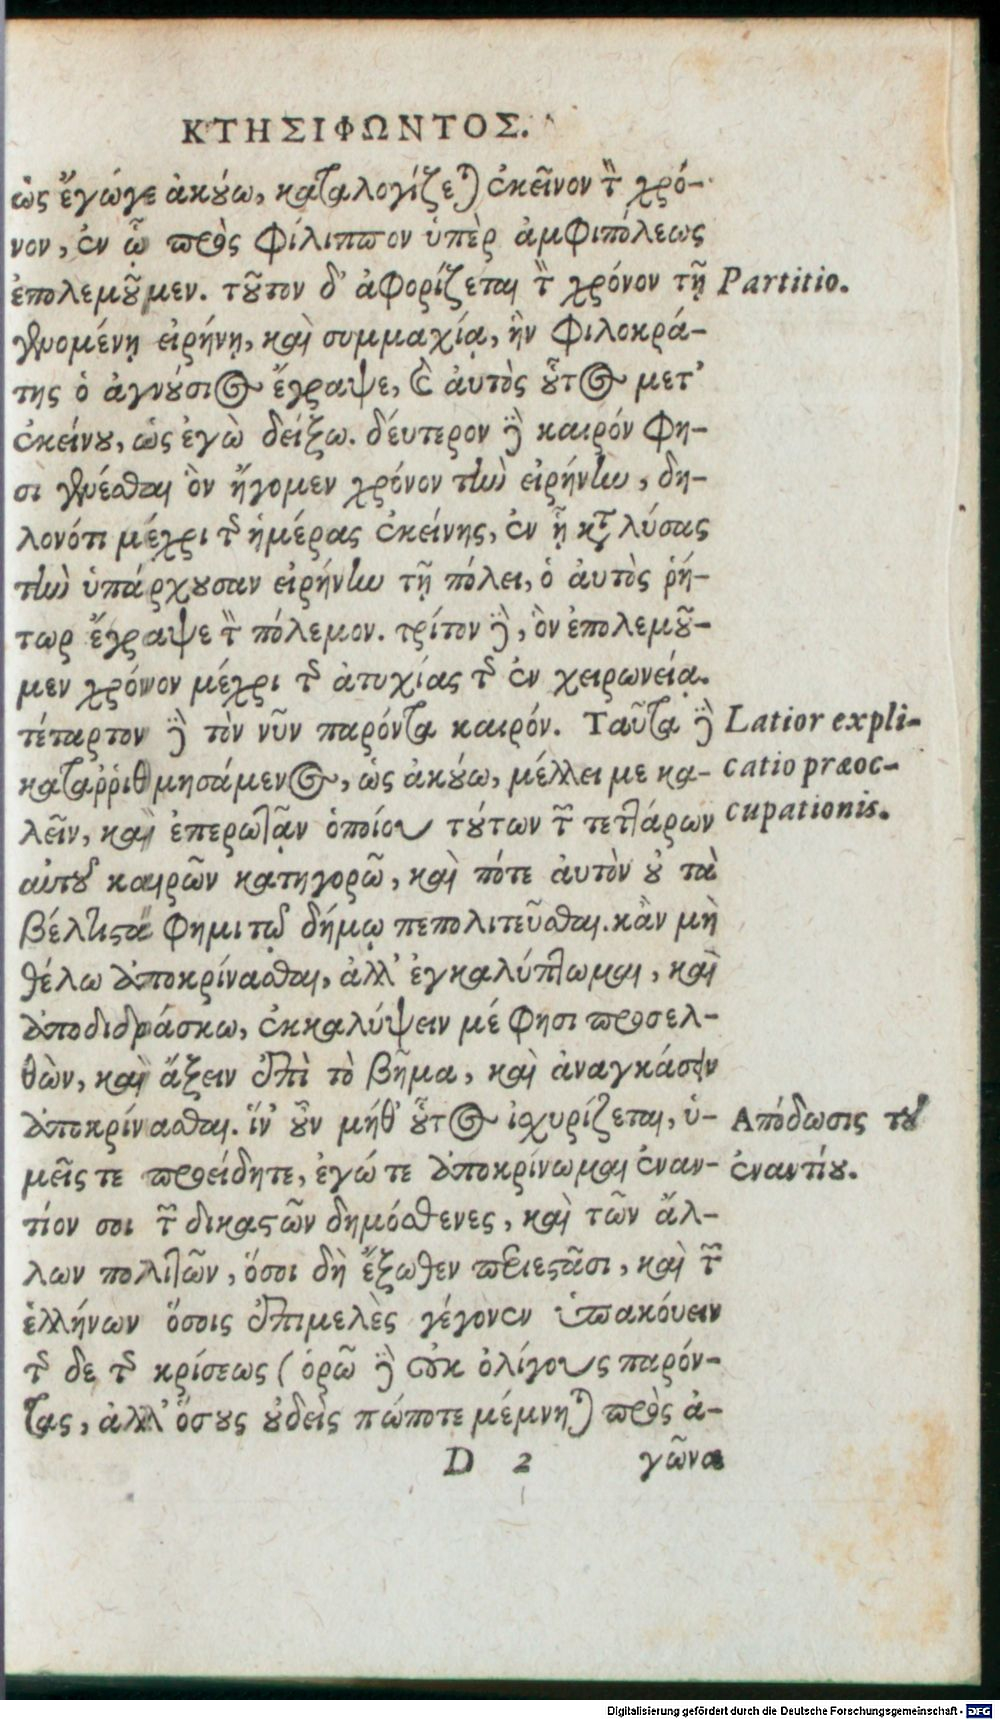 ΚΤΗΣΙΦΩΝΤΟΣ.
ὡς ἔγώγε ἀκούω, καταλογίζεται ἐκεῖνον τὸν χρό-
νον, ἐν ᾧ πρὸς Φίλιππον ὑπὲρ ἀμφιπόλεως
ἐπολεμοῦμεν. τοῦτον δ' ἀφορίζεται τὸν χρόνον τῇ
Partitio.
γενομένῃ εἰρήνῃ, καὶ συμμαχίᾳ, ἣν Φιλοκρά-
της ὁ ἁγνούσιος ἔγραψε, καὶ αὐτὸς οὗτος μετ'
ἐκείνου, ὡς ἐγὼ δείξω. δεύτερον δὲ καιρόν φη-
σι γενέσθαι ὃν ἤγομεν χρόνον τὴν εἰρήνην, δη-
λονότι μέχρι τῆς ἡμέρας ἐκείνης, ἐν ᾗ καταλύσας
τὴν ὑπάρχουσαν εἰρήνην τῇ πόλει, ὁ αὐτὸς ῥή-
τωρ ἔγραψε τὸν πόλεμον. τρίτον δὲ, ὃν ἐπολεμοῦ-
μεν χρόνον μέχρι τῆς ἀτυχίας τῆς ἐν χειρωνείᾳ.
τέταρτον δὲ τὸν νῦν παρόντα καιρόν. Ταῦτα δὲ
Latior expli-
καταῤῥιθμησάμενος, ὡς ἀκούω, μέλλει με κα-
catio præoc-
λεῖν, καὶ ἐπερωτᾷν ὁποίου τούτων τῶν τεττάρων
cupationis.
αὐτοῦ καιρῶν κατηγορῶ, καὶ πότε αὐτὸν οὐ τὰ
βέλτιστά φημι τῷ δήμῳ πεπολιτεῦσθαι. κἂν μὴ
θέλω ἀποκρίνασθαι, ἀλλ' ἐγκαλύπτωμαι, καὶ
ἀποδιδράσκω, ἐκκαλύψειν μέ φησι προσελ-
θὼν, καὶ ἄξειν ἐπὶ τὸ βῆμα, καὶ ἀναγκάσειν
ἀποκρίνασθαι. ἵν' οὖν μήθ' οὗτος ἰσχυρίζεται, ὑ-
Απόδωσις τοῦ
μεῖς τε προείδητε, ἐγώ τε ἀποκρίνωμαι ἐναν-
ἐναντίου.
τίον σοι τῶν δικαστῶν δημόσθενες, καὶ τῶν ἄλ-
λων πολιτῶν, ὅσοι δὴ ἔξωθεν περιεστᾶσι, καὶ τῶν
ἑλλήνων ὅσοις ἐπιμελὲς γέγονεν ὑπακούειν
τῆς δε τῆς κρίσεως (ὁρῶ δὲ οὐκ ὀλίγους παρόν-
τας, ἀλλ' ὅσους οὐδεὶς πώποτε μέμνηται πρὸς ἀ-
D 2 γῶνα
Digitalisierung gefördert durch die Deutsche Forschungsgemeinschaft - DFG